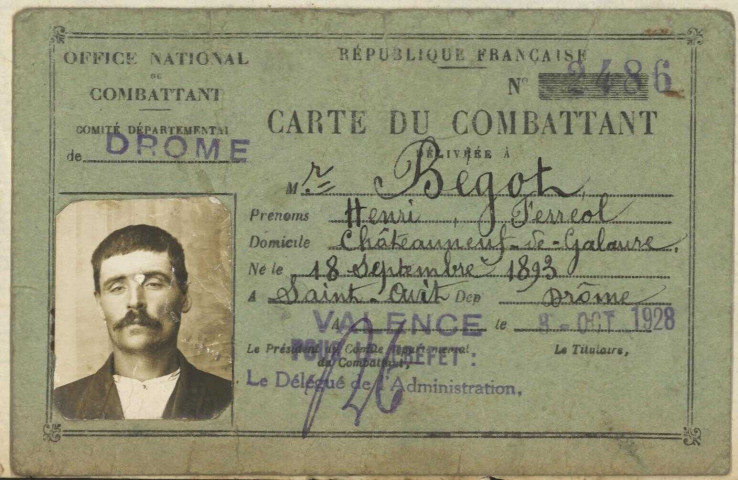 OFFICE NATIONAL
DU
COMBATTANT
COMITÉ DÉPARTEMENTAL
de DROME
RÉPUBLIQUE FRANÇAISE
N° 2486
CARTE DU COMBATTANT
DÉLIVRÉE À
Mr Bégot
Prenoms Henri, Ferreol
Domicile Châteauneuf-de-Galaure,
Né le 18 Septembre 1893
A Saint-Avit Dep Drôme
A VALENCE le 8 - OCT 1928
Le Président du Comité Départemental
du Combattant,
PREFET :
Le Titulaire,
Le Délégué de l'Administration,